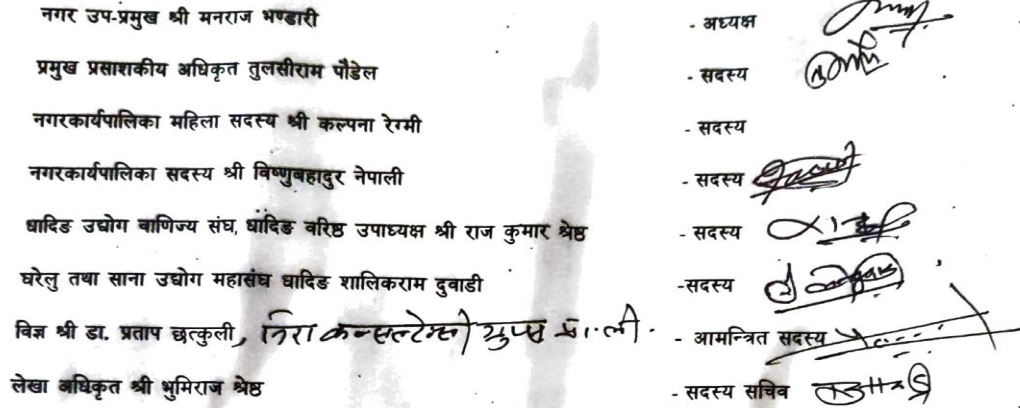 नगर उप-प्रमुख श्री मनराज भण्डारी - अध्यक्ष
प्रमुख प्रसाशकीय अधिकृत तुलसीराम पौडेल - सदस्य
नगरकार्यपालिका महिला सदस्य श्री कल्पना रेग्मी - सदस्य
नगरकार्यपालिका सदस्य श्री विष्णुबहादुर नेपाली - सदस्य
धादिङ उद्योग वाणिज्य संघ, धादिङ वरिष्ठ उपाध्यक्ष श्री राज कुमार श्रेष्ठ - सदस्य
घरेलु तथा साना उद्योग महासंघ धादिङ शालिकराम दुवाडी -सदस्य
विज्ञ श्री डा. प्रताप छत्कुली, कन्सल्टेन्सी ग्रुप्स प्रा.ली. - आमन्त्रित सदस्य
लेखा अधिकृत श्री भुमिराज श्रेष्ठ - सदस्य सचिव